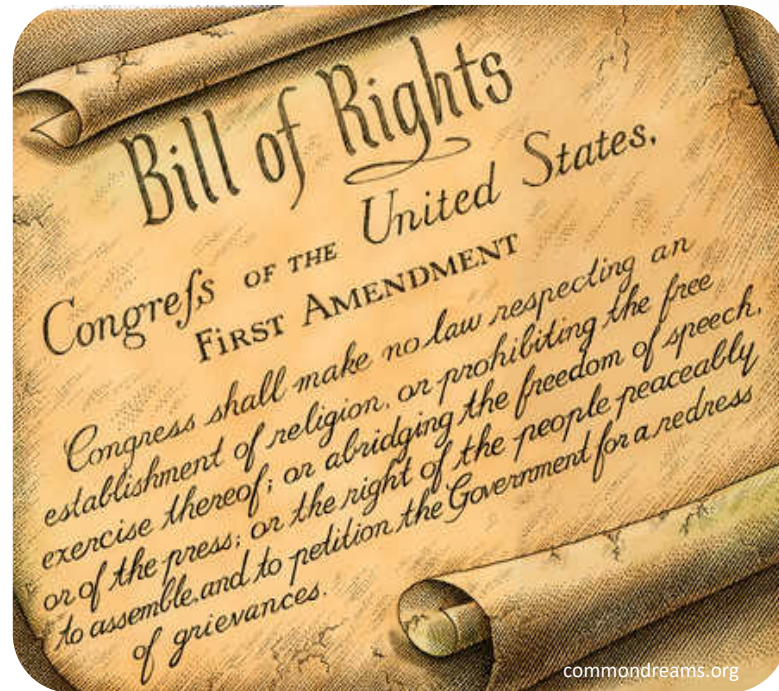 Bill of Rights
Congreſs OF THE United States,
FIRST AMENDMENT
Congress shall make no law respecting an
establishment of religion, or prohibiting the free
exercise thereof; or abridging the freedom of speech,
or of the press; or the right of the people peaceably
to assemble, and to petition the Government for a redress
of grievances.
commondreams.org